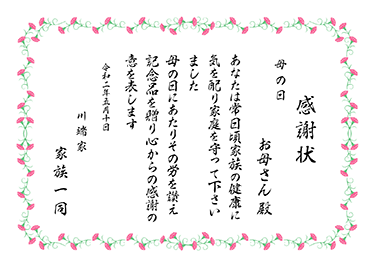 感謝状
母の日
お母さん殿
あなたは常日頃家族の健康に
気を配り家庭を守って下さい
ました
母の日にあたりその労を讃え
記念品を贈り心からの感謝の
意を表します
令和二年五月十日
川端家
家族一同